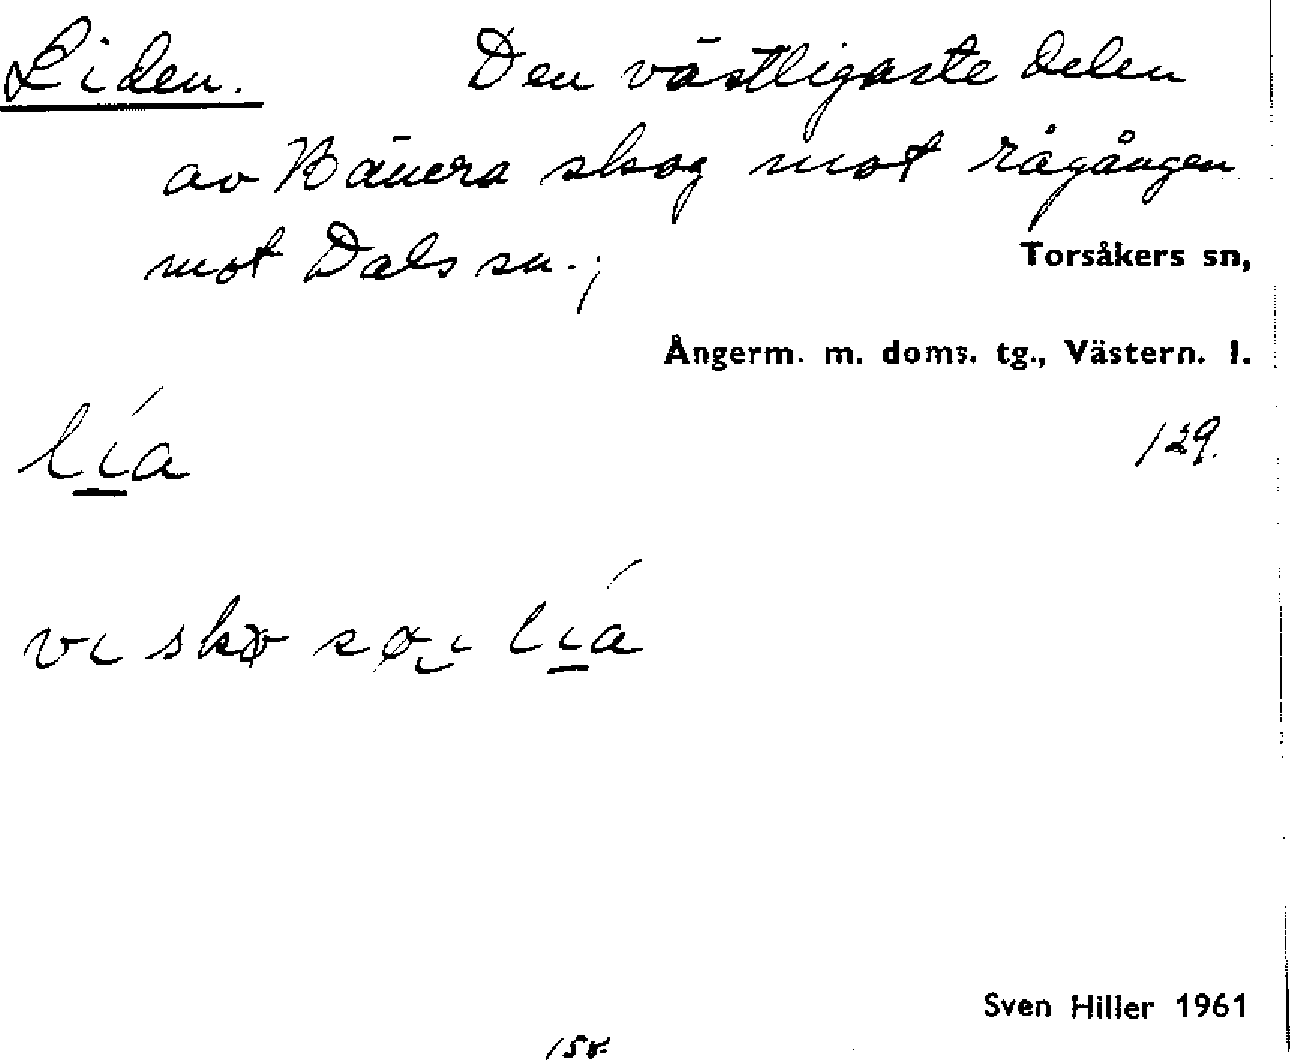 Liden. Den västligaste delen
av Bänera skog mot rågången
mot Dals sn.;
Torsåkers sn,
Ångerm. m. doms. tg., Västern. l.
129.
lía
vi skø
lía
Sven Hiller 1961